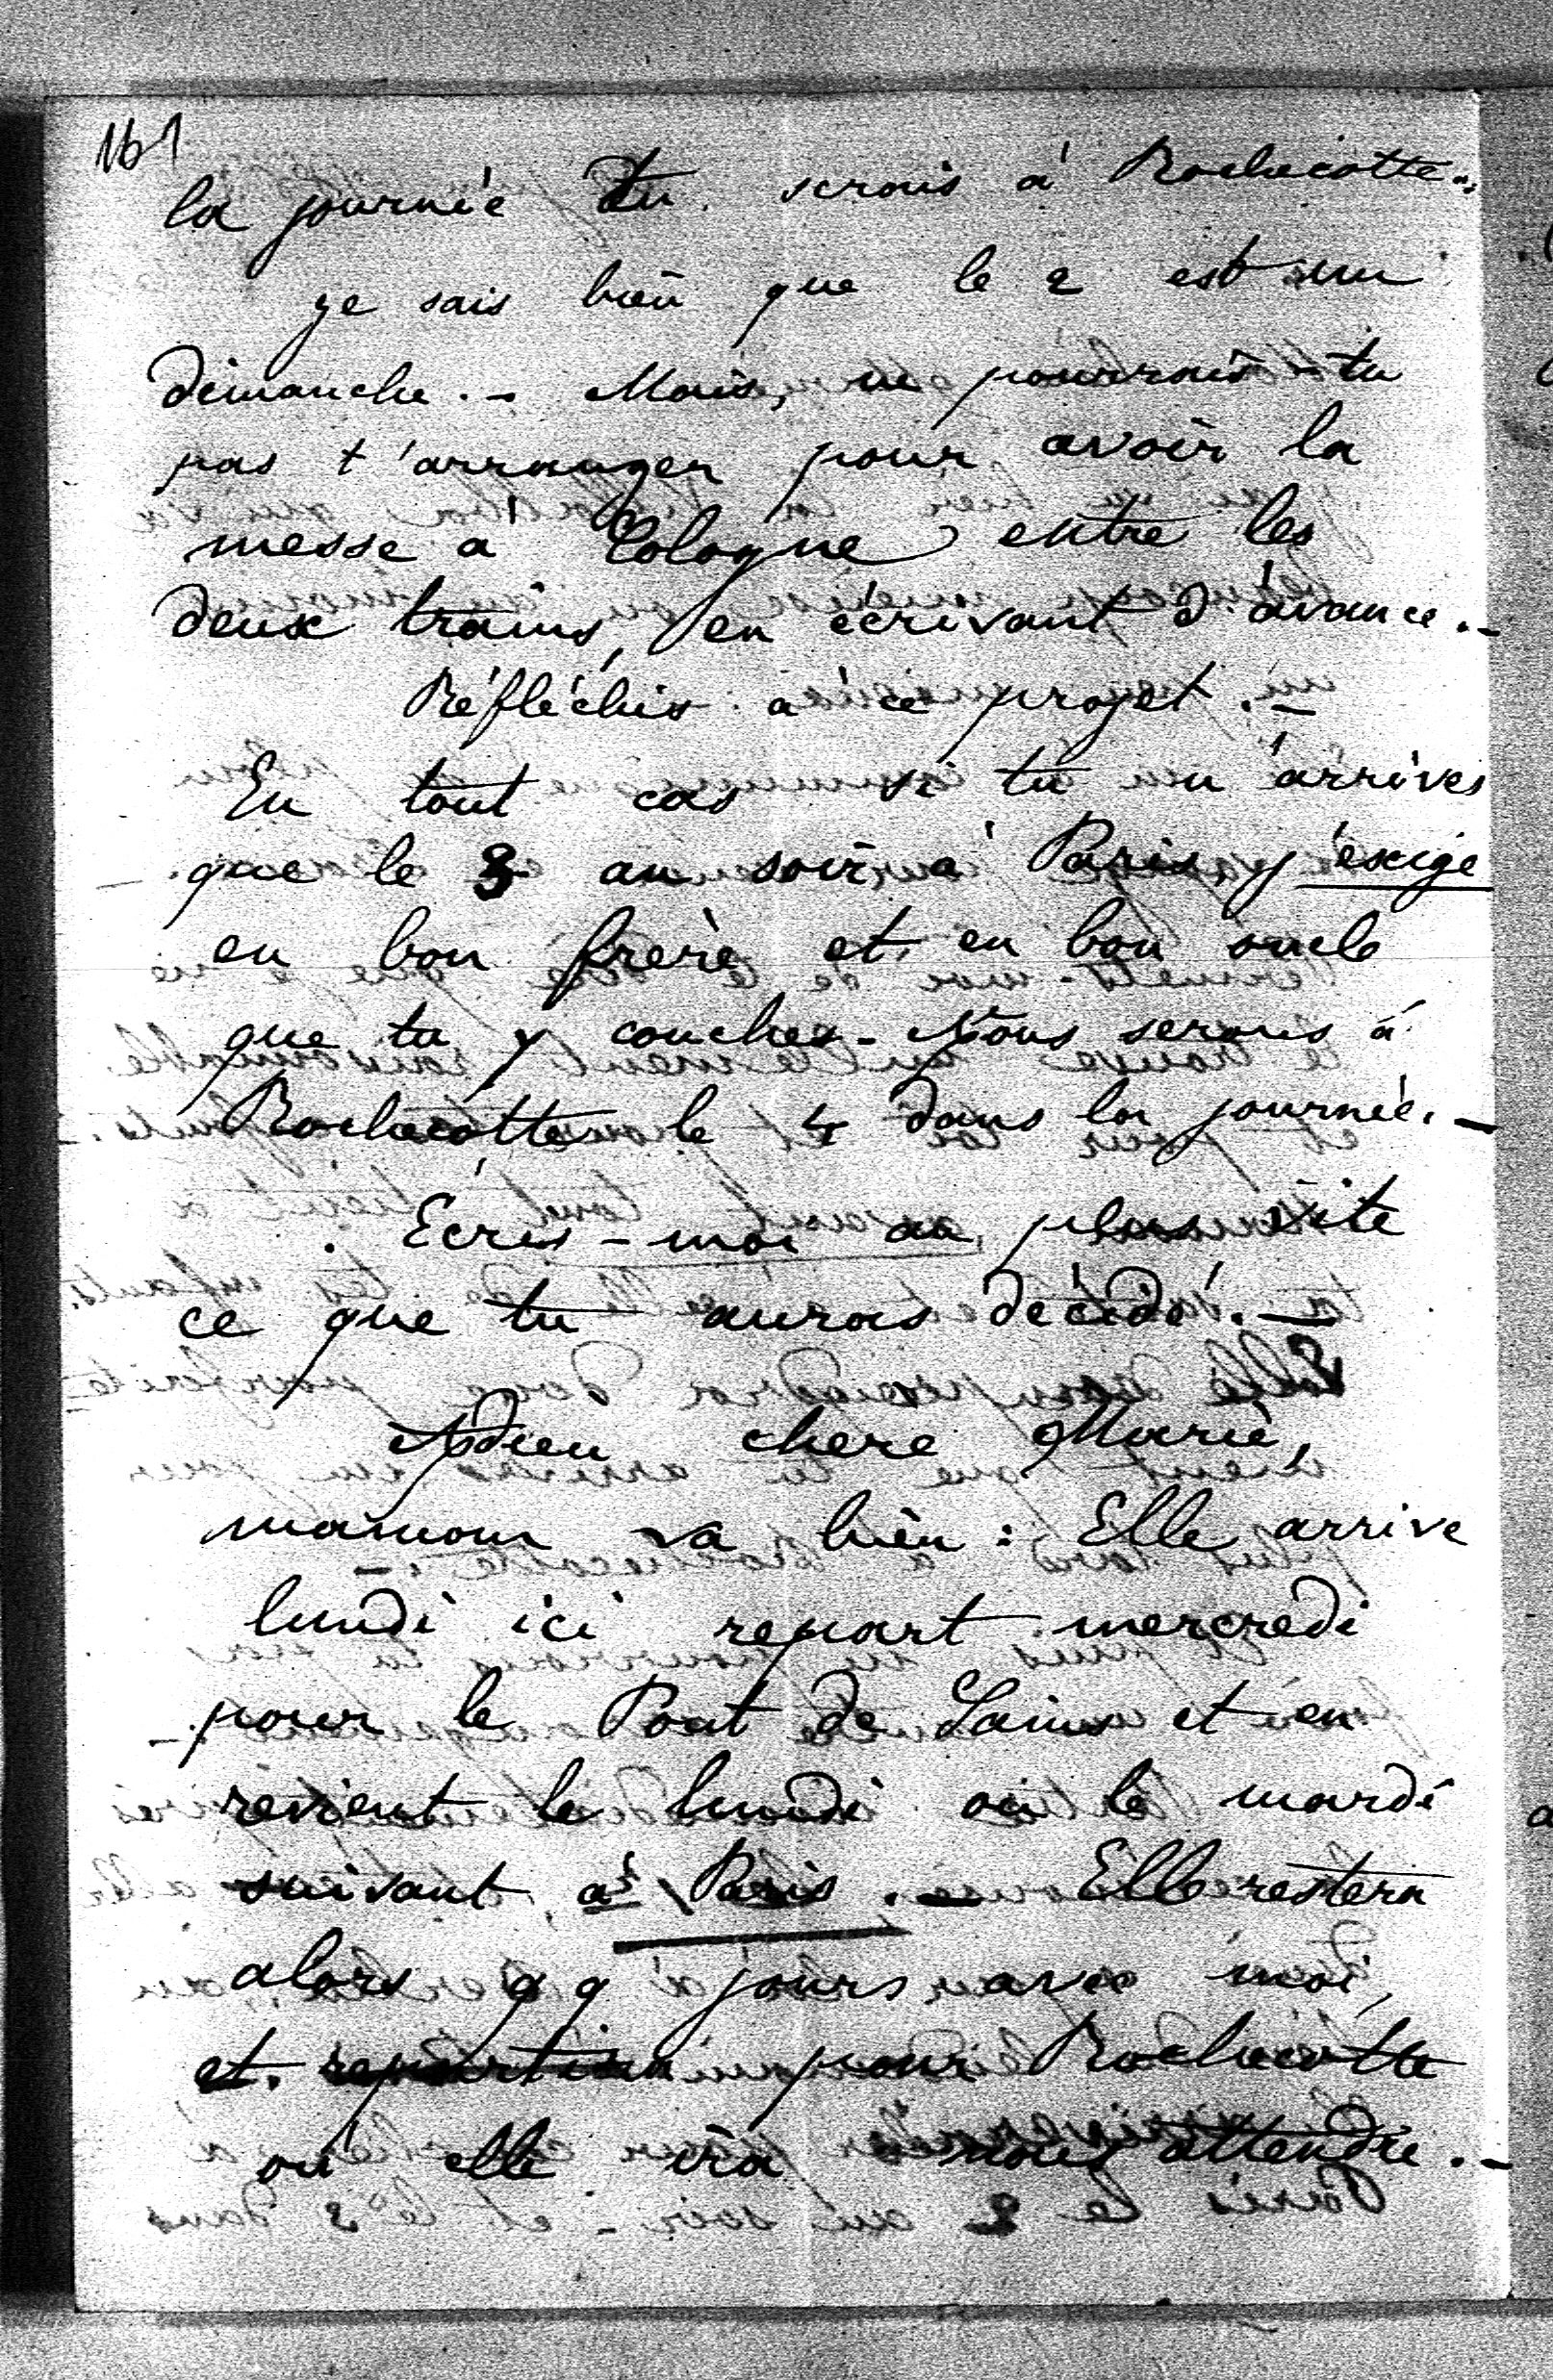 161
la journée tu serais à Rochecotte.
je sais bien que le 2 est un
dimanche. - Mais, ne pourrais-tu
pas t'arranger pour avoir la
messe a Cologne entre les
deux trains, en écrivant d'avance. -
Réfléchis à ce projet. -
En tout cas si tu n'arrives
que le 3 au soir à Paris, j'exige
en bon frère et en bon oncle
que tu y couches - Nous serons à
Rochecotte le 4 dans la journée. -
Ecris-moi au plus vite
ce que tu auras décidé. -
Adieu chere Marie,
maman va bien : Elle arrive
lundi ici repart mercredi
pour le Pont de Sains et en
revient le lundi ou le mardi
suivant à Paris. - Elle restera
alors qq jours avec moi,
et repartira pour Rochecotte
où elle ira nous attendre. -